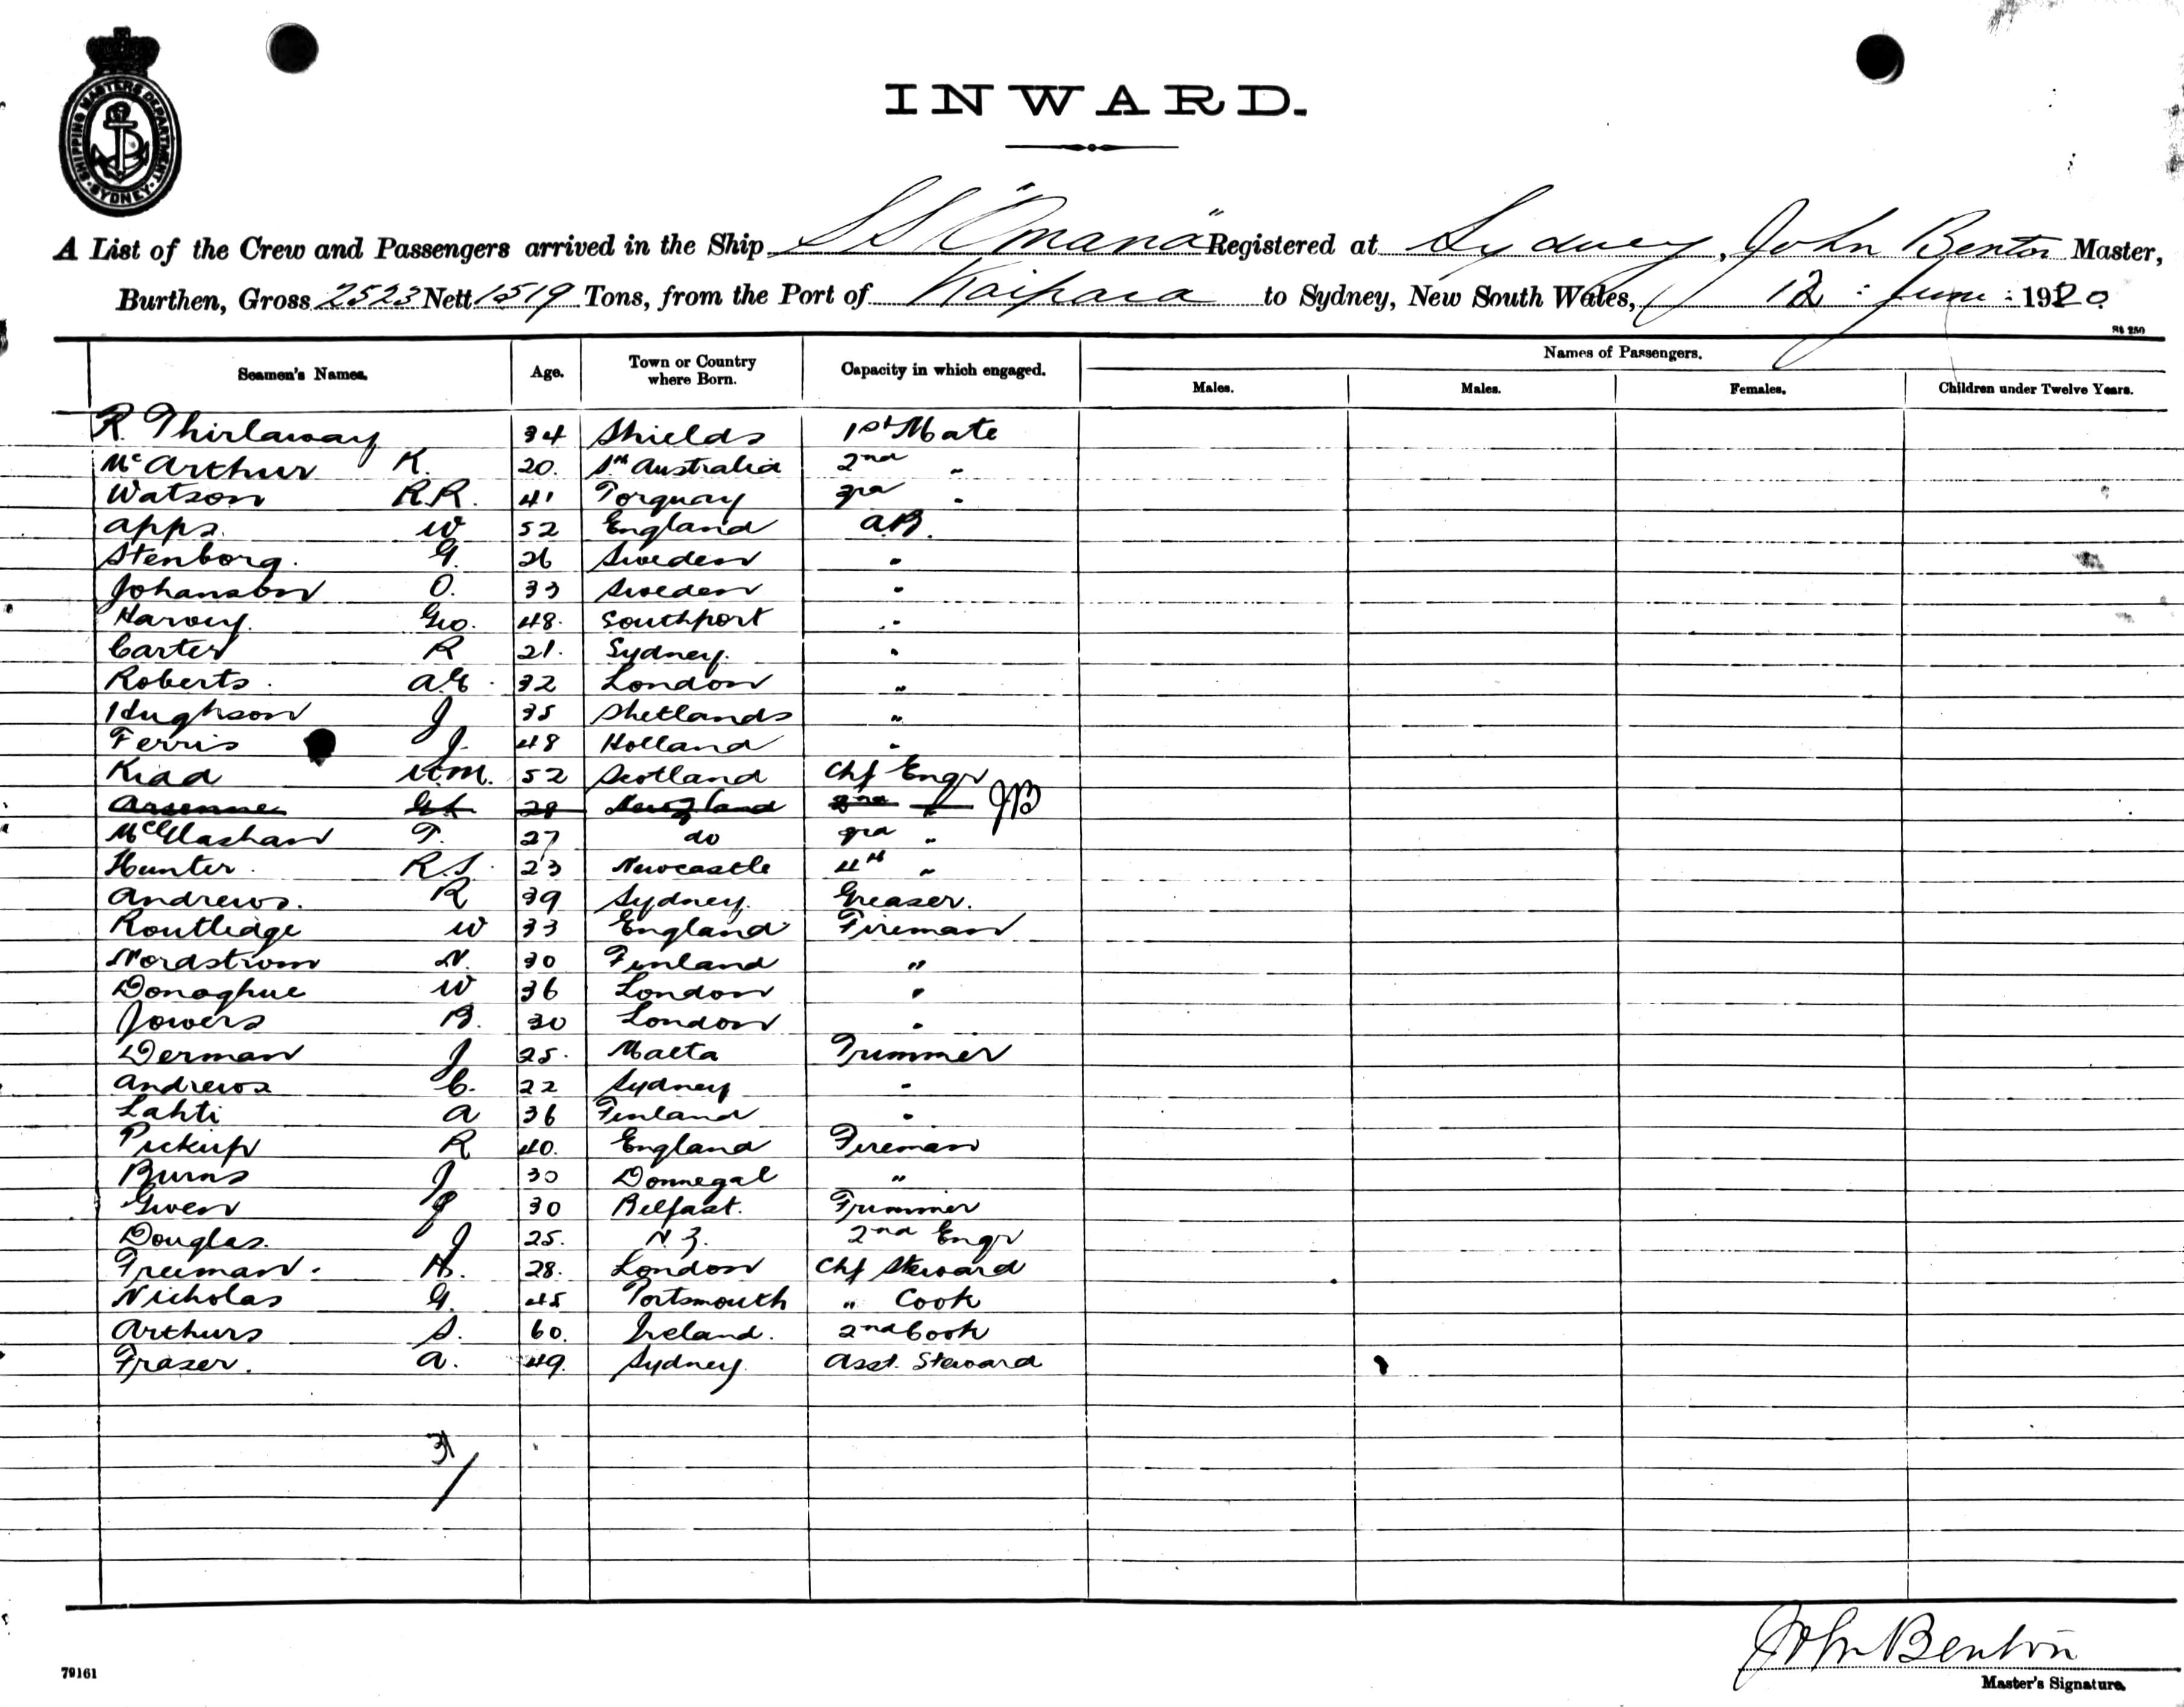 SHIPPING MASTERS DEPARTMENT. SYDNEY
INWARD.
A List of the Crew and Passengers arrived in the Ship S S "Omana" Registered at Sydney, John Benton Master,
Burthen, Gross 2523 Nett 1519 Tons, from the Port of Kaipara to Sydney, New South Wales, 12 : June : 1920.
Seamen's Names. Age. Town or Country where Born. Capacity in which engaged. Names of Passengers.
Males. Males. Females. Children under Twelve Years.
R. Thirlaway 34 Shields 1st Mate
McArthur K. 20. Sth Australia 2nd "
Watson R.R. 41 Torquay 3rd "
Apps. W 52 England A.B.
Stenborg. G. 26 Sweden "
Johanson O. 33 Sweden "
Harvey. Geo. 48. Southport "
Carter R 21. Sydney. "
Roberts. A.E. 32 London "
Hughson J 35 Shetlands "
Ferris J. 48 Holland "
Kidd 52 Scotland Chf Engr
Arsenne 28 2nd " JB
McGlashan T. 27 do 3rd "
Hunter. R.S. 23 Newcastle 4th "
Andrews. R 39 Sydney. Greaser.
Routledge W 33 England Fireman
Nordstrom N. 30 Finland "
Donoghue W 36 London "
Jowers B. 30 London "
Derman J 25. Malta Trimmer
Andrews C. 22 Sydney "
Lahti A 36 Finland "
Pickup R 40. England Fireman
Burns J 30 Donnegal "
Gwen J 30 Belfast. Trimmer
Douglas. J 25. N.Z. 2nd Engr
Freeman. H. 28. London Chf Steward
Nicholas G. 45 Portsmouth " Cook
Arthurs S. 60. Ireland. 2nd Cook
Fraser. A. 49. Sydney. Asst. Steward
31/
John Benton
Master's Signature.
79161